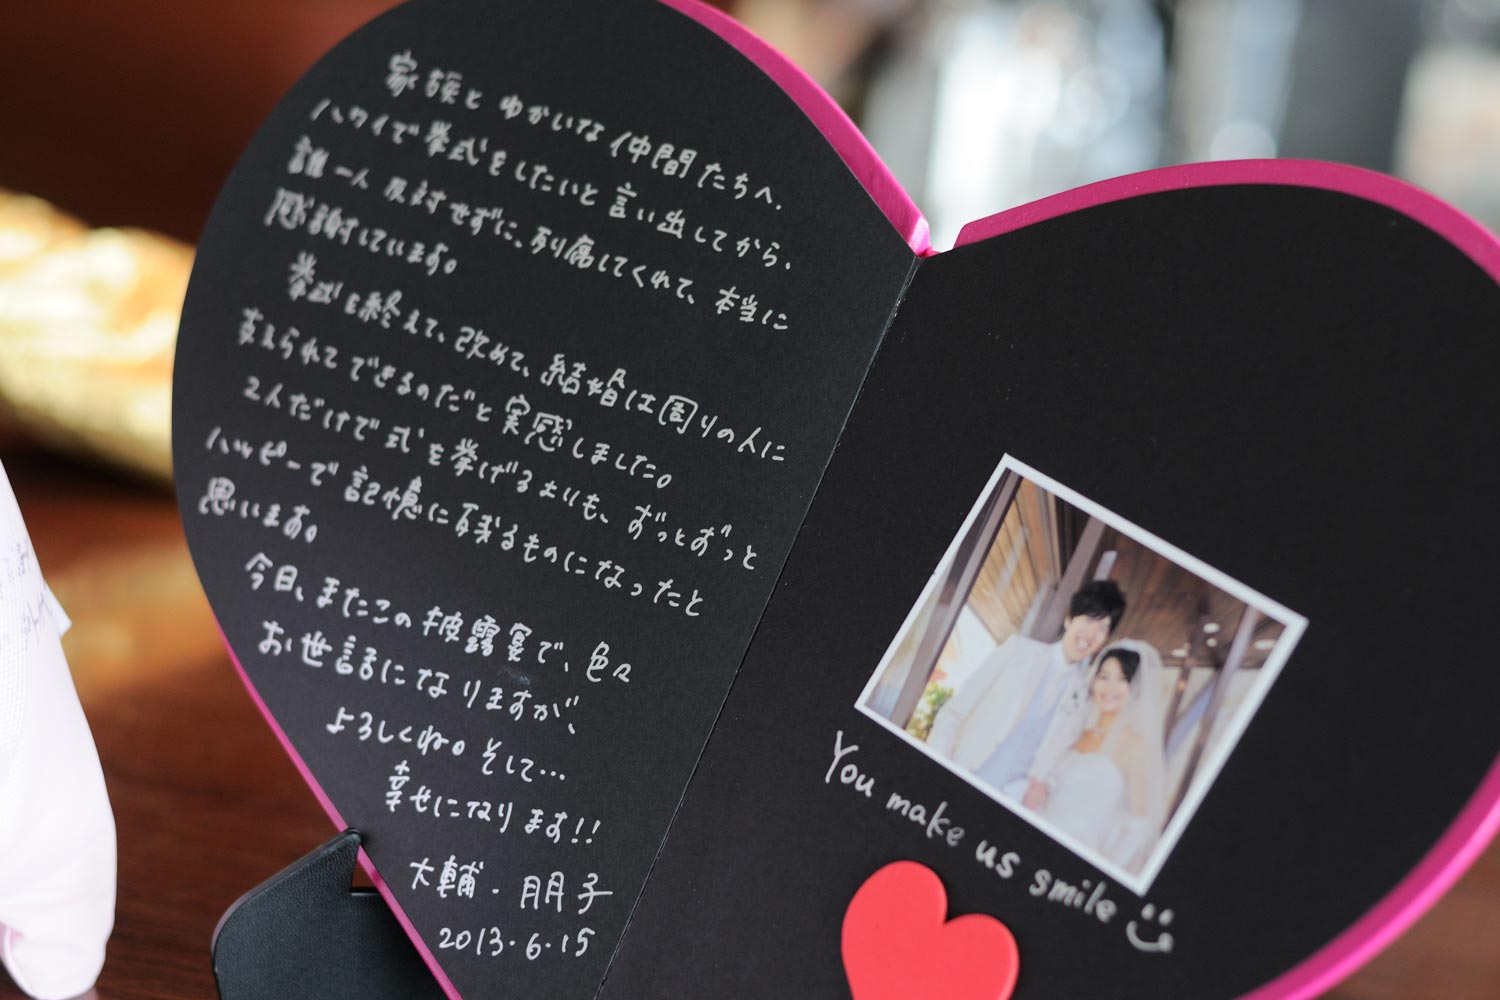 家族と ゆかいな 仲間たちへ.
ハワイで 挙式をしたいと 言い出してから、
誰一人 反対せずに、列席してくれて、本当に
感謝しています。
挙式を終えて、改めて、結婚は周りの人に
支えられてできるのだと 実感しました。
2人だけで 式を挙げるよりも、ずっとずっと
ハッピーで 記憶に残るものになったと
思います。
今日、またこの 披露宴で、色々
お世話になりますが、
よろしくね。そして…
幸せになります!!
大輔・朋子
2013.6.15
You make us smile